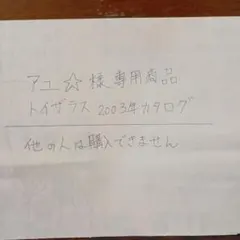 アユ☆様専用商品
トイザラス2003年カタログ
他の人は購入できません